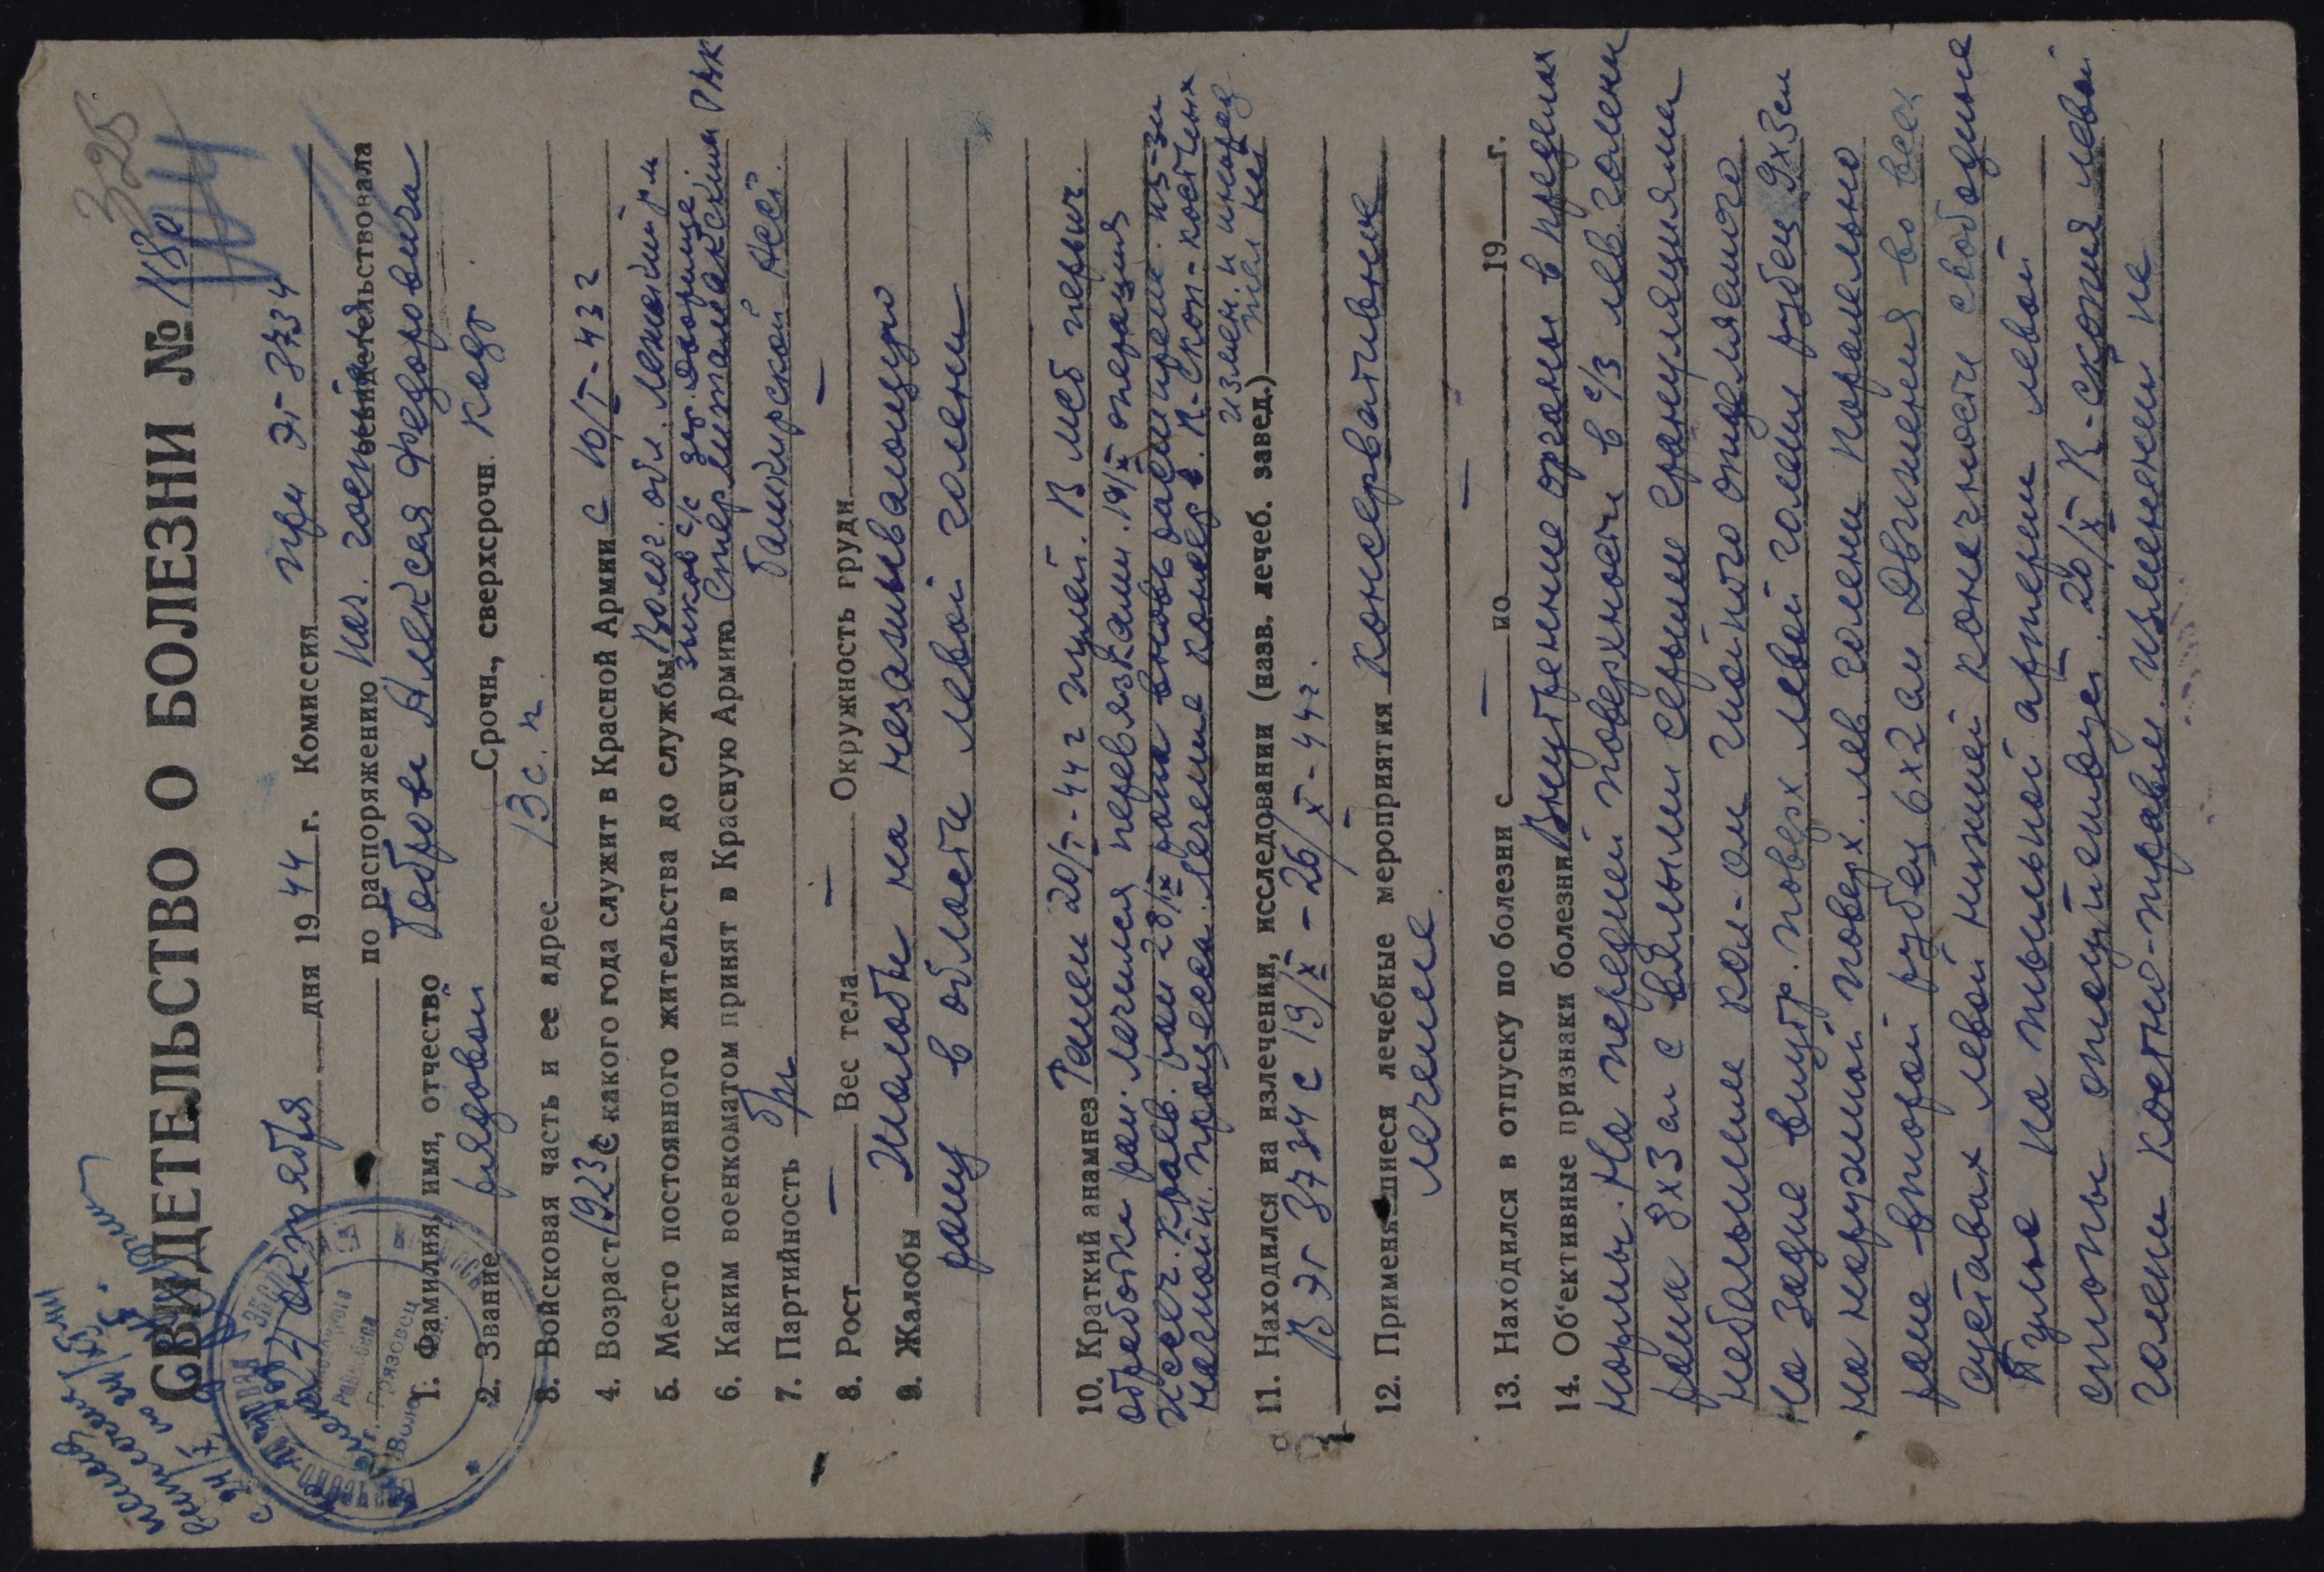 325
СВИДЕТЕЛЬСТВО О БОЛЕЗНИ №
октября дня 1944 г. Комиссия при ЭГ-3734
по распоряжению нач. госпиталя освидетельствовала
1. Фамилия, имя, отчество Боброва Алексея Федоровича
2. Звание рядовой Срочн., сверхсрочн. кадр
3. Войсковая часть и ее адрес 13 с. п.
4. Возраст 1923 С какого года служит в Красной Армии с 10/I-43 г
5. Место постоянного жительства до службы Волог. обл.
с/с дер. Дворище
6. Каким военкоматом принят в Красную Армию Стерлитамакским РВК
Башкирской АССР.
7. Партийность б/п
8. Рост — Вес тела — Окружность груди —
9. Жалобы Жалобы на незаживающую
рану в области левой голени
10. Краткий анамнез Ранен 20/I-44 г пулей. В мсб первич.
обработка ран. лечился перевязками. 19/II операция
иссеч. краев. ран 28/IX рана вновь из-за
процесса. Лечение R-скоп-костных
измен. и инород
тел нет
11. Находился на излечении, исследовании (назв. лечеб. завед.)
В ЭГ 3734 с 19/X - 26/X-44 г.
12. Применявшиеся лечебные мероприятия консервативное
лечение
13. Находился в отпуску по болезни с — по — 19 г.
14. Об'ективные признаки болезни Внутренние органы в пределах
нормы. На передней поверхности в с/3 лев. голени
рана 8х3 см с вялыми серыми грануляциями
небольшим кол-ом гнойного отделяемого
На задне внутр. поверх левой голени рубец 9х3см
на наружной поверх. лев голени паралельно
ране второй рубец 6х2 см. Движения во всех
суставах левой нижней конечности свободные
Пульс на тыльной артерии левой
стопы отсутствует. 26/X R-скопия левой
голени костно-травм. изменений не